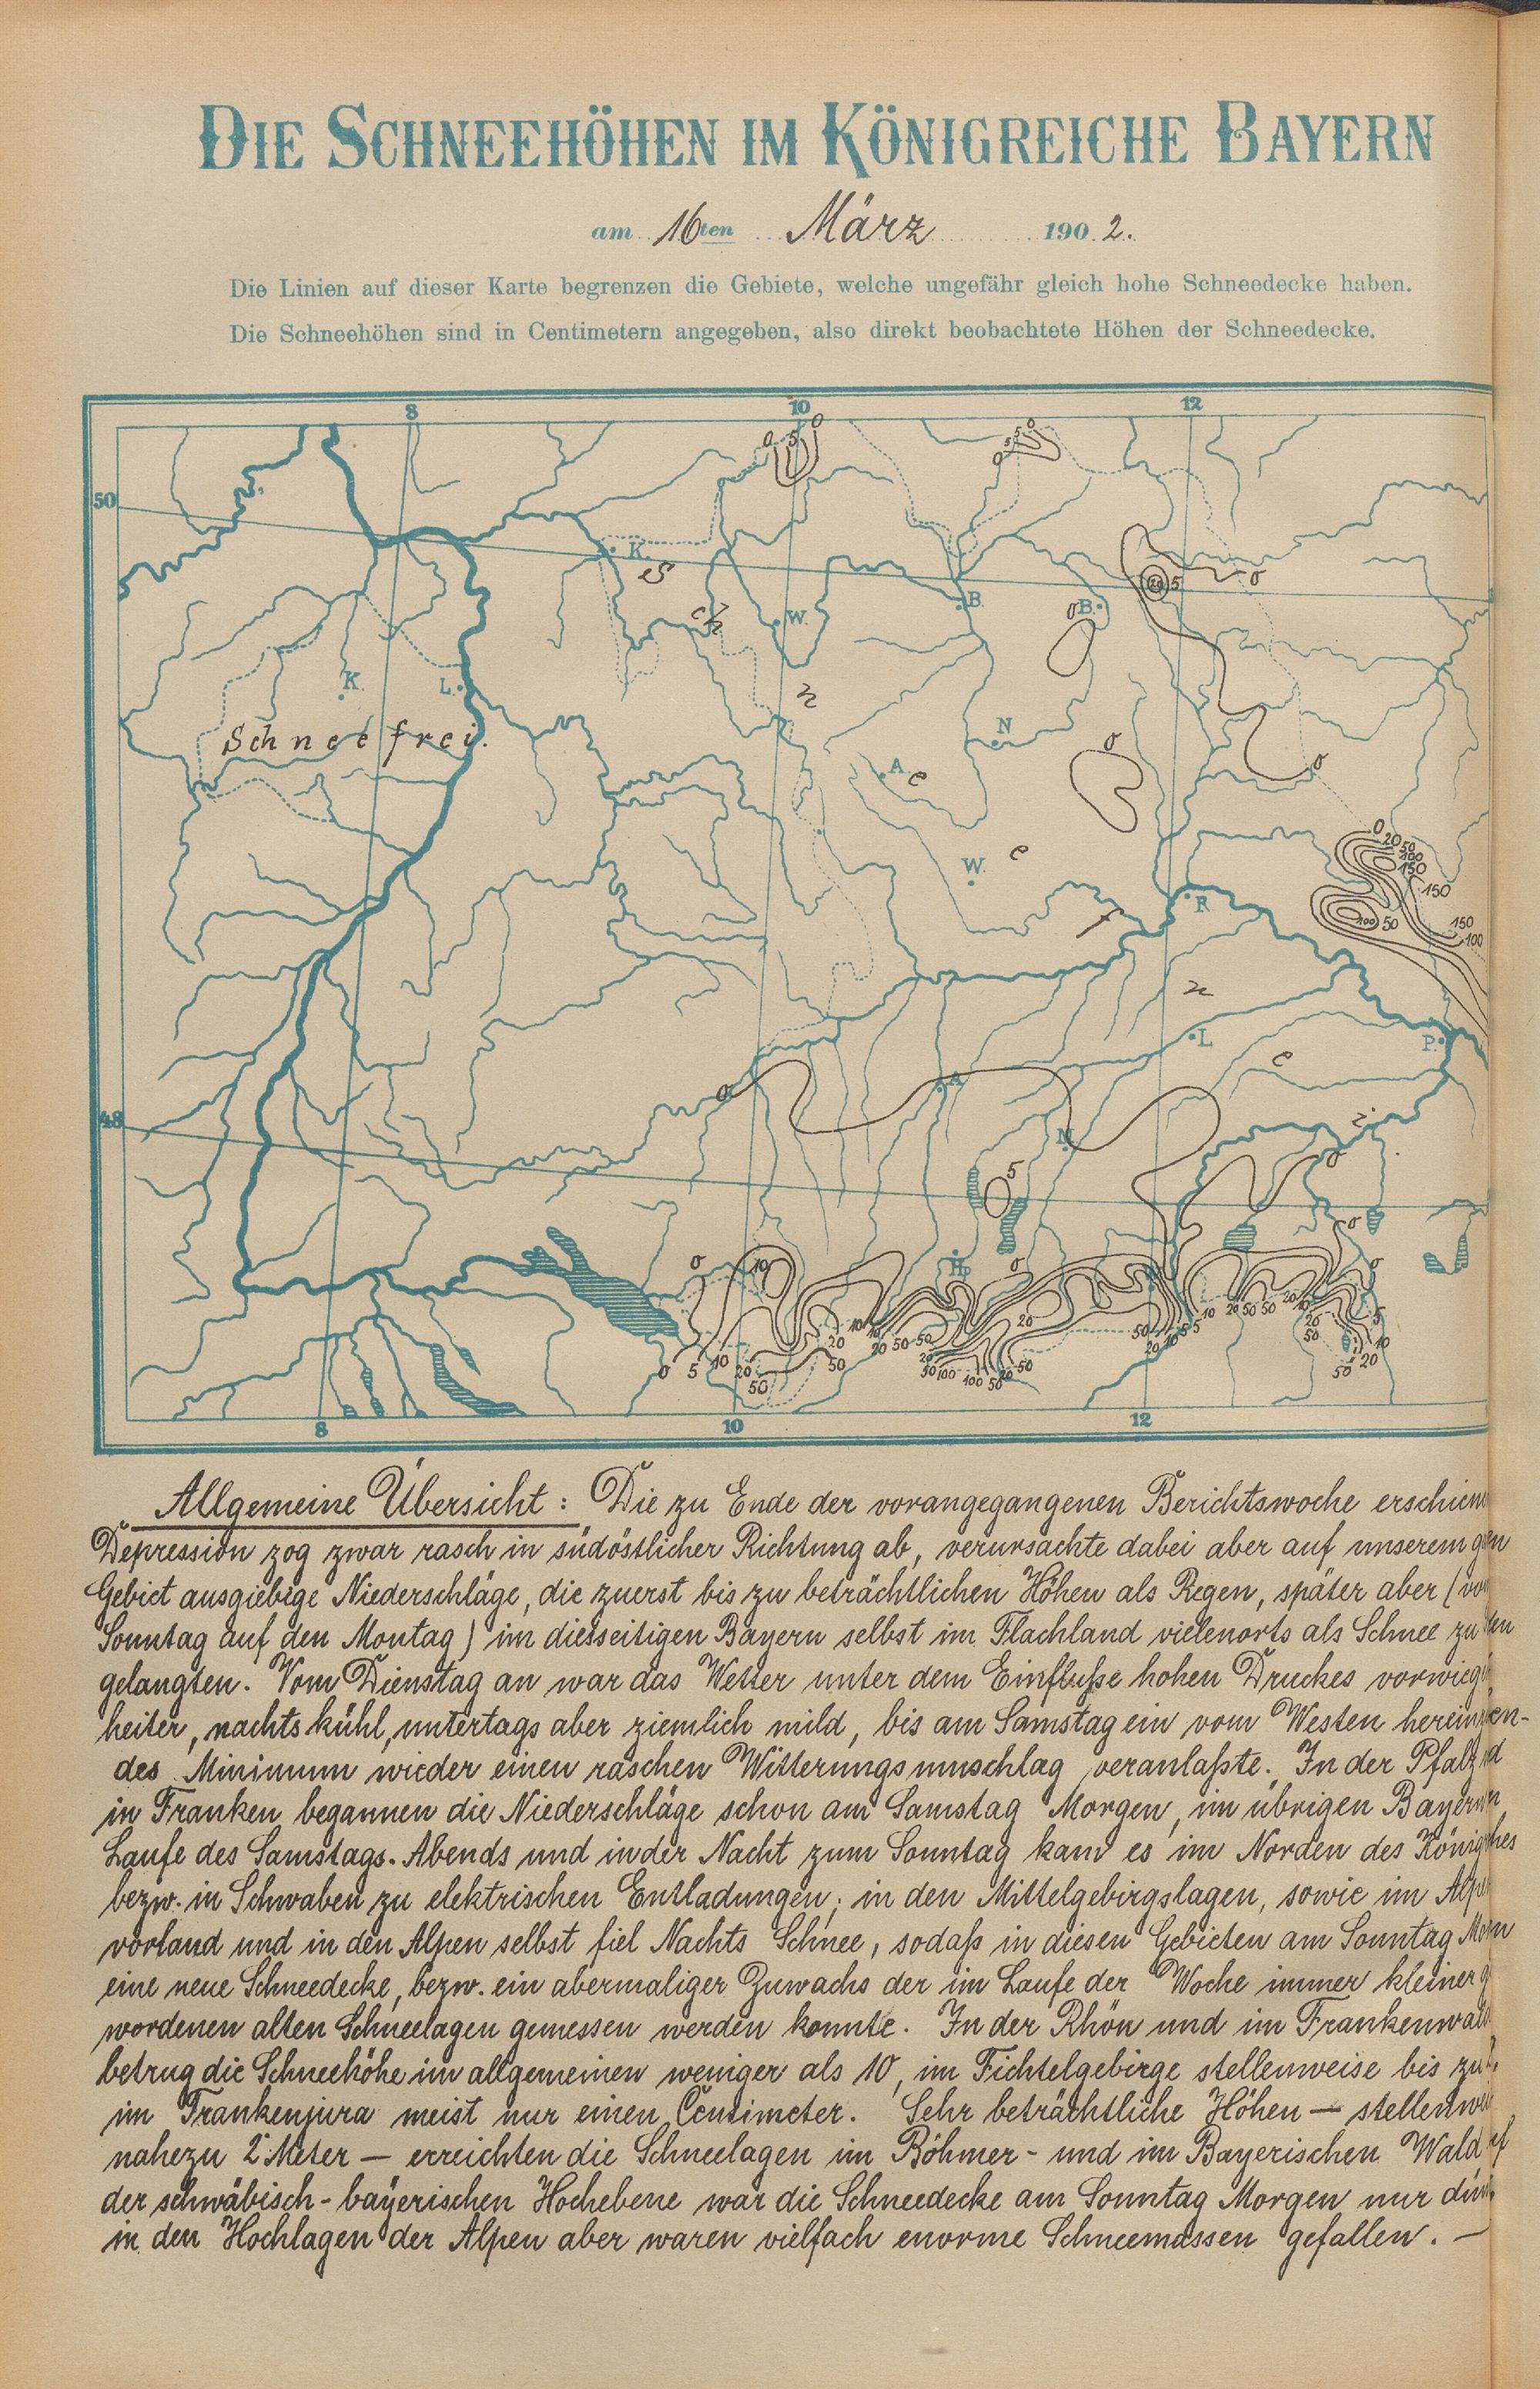 DIE SCHNEEHÖHEN IM KÖNIGREICHE BAYERN
am 16ten März 1902.
Die Linien auf dieser Karte begrenzen die Gebiete, welche ungefähr gleich hohe Schneedecke haben.
Die Schneehöhen sind in Centimetern angegeben, also direkt beobachtete Höhen der Schneedecke.
8 10 12
0 5 0
0 5 5 0
50
K.
S ch n e e f r e i
20 5 0
B.
0 B.
W.
K. L.
N
Schneefrei.
A
0
0
W.
0 20 50 100 150
150
R
100 50
150
100
L
P.
0
A
48
M
5
0
0
0 10
Hp
0
0
0 5 10 20 50
20 50
10 10 20 50 50
20 50 100 100 50 20 50
20
50 20 10 5 5 10
20 50 50 20 10
20 50
5 10 20 50
8 10 12
Allgemeine Übersicht: Die zu Ende der vorangegangenen Berichtswoche
Depression zog zwar rasch in südöstlicher Richtung ab, verursachte dabei aber auf unserem
Gebiet ausgiebige Niederschläge, die zuerst bis zu beträchtlichen Höhen als Regen, später aber (
Sonntag auf den Montag) im diesseitigen Bayern selbst im Flachland vielenorts als Schnee zu
gelangten. Vom Dienstag an war das Wetter unter dem Einfluße hohen Druckes
heiter, nachts kühl, untertags aber ziemlich mild, bis am Samstag ein vom Westen
des Minimum wieder einen raschen Witterungsumschlag veranlaßte. In der Pfalz
in Franken begannen die Niederschläge schon am Samstag Morgen, im übrigen Bayern
Laufe des Samstags. Abends und in der Nacht zum Sonntag kam es im Norden des
bezw. in Schwaben zu elektrischen Entladungen; in den Mittelgebirgslagen, sowie im
vorland und in den Alpen selbst fiel Nachts Schnee, sodaß in diesen Gebieten am Sonntag
eine neue Schneedecke, bezw. ein abermaliger Zuwachs der im Laufe der Woche immer kleiner
wordenen alten Schneelagen gemessen werden konnte. In der Rhön und im Frankenwald
betrug die Schneehöhe im allgemeinen weniger als 10, im Fichtelgebirge stellenweise bis zu
im Frankenjura meist nur einen Centimeter. Sehr beträchtliche Höhen —
nahezu 2 Meter — erreichten die Schneelagen im Böhmer- und im Bayerischen Wald
der schwäbisch-bayerischen Hochebene war die Schneedecke am Sonntag Morgen nur
in den Hochlagen der Alpen aber waren vielfach enorme Schneemassen gefallen. —